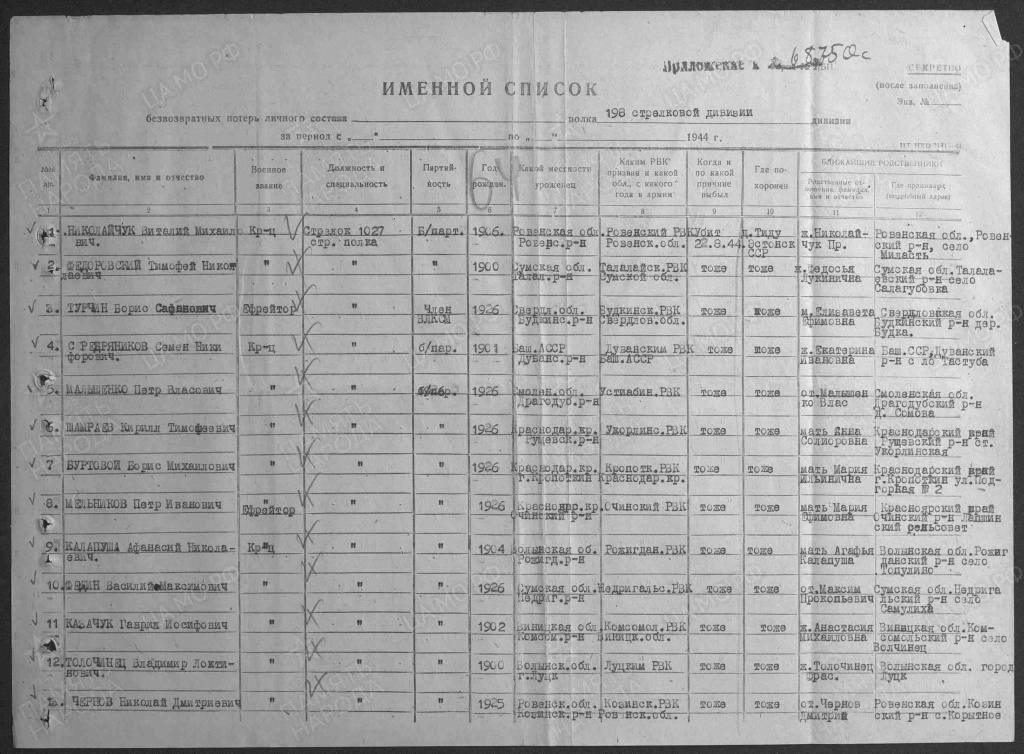 Приложение к № 68750с
СЕКРЕТНО
(после заполнения)
Экз. №
ИМЕННОЙ СПИСОК
безвозвратных потерь личного состава полка 198 стрелковой дивизии дивизии
за период с „ " по „ " 1944 г.
БЛИЖАЙШИЕ РОДСТВЕННИКИ
Фамилия, имя и отчество
Военное звание
Должность и специальность
Партий-ность
Год рожден.
Какой местности уроженец
Каким РВК призван и какой обл., с какого года в армии
Когда и по какой причине выбыл
Где по-хоронен
Родственные от-ношения, фамилия, имя и отчество
Где проживают (подробный адрес)
1 2 3 4 5 6 7 8 9 10 11 12
1. НИКОЛАЙЧУК Виталий Михайло Кр-ц Стрелок 1027 Б/парт. 1906. Ровенская обл. Ровенский РВК Убит д.Тиду ж.Николай- Ровенская обл.,Ровен-
вич. стр. полка Ровенс.р-н Ровенск.обл. 22.8.44. Эстонск чук Пр. ский р-н, село
ССР Миласть
2. ФЕДОРОВСКИЙ Тимофей Никол " " " 1900 Сумская обл. Талалайск.РВК тоже тоже ж.Федосья Сумская обл.Талала-
аевич Талал.р-н Сумской обл. Лукинична евский р-н село
Салагубовка
3. ТУРЧИН Борис Сафанович Ефрейтор " Член 1926 Свердл.обл. Будкинск.РВК тоже тоже м.Елизавета Свердловская обл.
ВЛКСМ Будкинс.р-н Свердлов.обл. Ефимовна Будкинский р-н дер.
Будка.
4. СЕРЕБРЯНИКОВ Семен Ники Кр-ц " б/пар. 1901 Баш.АССР Дуванским РВК тоже тоже ж.Екатерина Баш.ССР,Дуванский
форович. Дуванс.р-н Баш.АССР Ивановна р-н с ло Тастуба
5. МАЛЫШЕНКО Петр Власович " " б/пар. 1926 Смолен.обл. Устиабин.РВК тоже тоже от.Малышен Смоленская обл.
Драгодуб.р-н ко Влас Драгодубский р-н
д. Сомова
6. ШАМРАЕВ Кирилл Тимофеевич " " " 1926 Краснодар.кр. Укорлинс.РВК тоже тоже мать Анна Краснодарский край
Рущевск.р-н Солиоровна Рущевский р-н ст.
Укорлинская
7 БУРТОВОЙ Борис Михайлович " " " 1926 Краснодар.кр. Кропотк.РВК тоже тоже мать Мария Краснодарский край
г.Кропоткин Краснодар.кр. Ильинична г.Кропоткин ул.Под-
горная № 2
8. МЕЛЬНИКОВ Петр Иванович " " " 1926 Краснодар.кр. Очинский РВК тоже тоже мать Мария Красноярский край
Ефрейтор Очинский р-н Ефимовна Очинский р-н Лапшин
ский сельсовет
9. КАЛАПУША Афанасий Никола- Кр-ц " " 1904 Волынская об. Рожигдан.РВК тоже тоже мать Агафья Волынская обл.Рожиг
евич. Рожигд.р-н Калапуша данский р-н село
Топулино
10. ФЕДИН Василий Максимович " " " 1926 Сумская обл. Недригальс.РВК тоже тоже от.Максим Сумская обл.Недрига
Недриг.р-н Прокопьевич льский р-н село
Самулиха
11 КАЗАЧУК Гаврил Иосифович " " " 1902 Виницкая обл. Комсомол.РВК тоже тоже ж.Анастасия Виницкая обл.Ком-
Комсом.р-н Виницк.обл. Михайловна сомольский р-н село
Волчинец
12. ТОЛОЧИНЕЦ Владимир Локти- " " " 1900 Волынск.обл. Луцким РВК тоже тоже ж.Толочинец Волынская обл. город
нович. г.Луцк Фрас. Луцк
13. ЧЕРНОВ Николай Дмитриевич " " " 1925 Ровенск.обл. Козинск.РВК тоже тоже от.Чернов Ровенская обл.Козин
Козинск.р-н Ров нск.обл. Дмитрий ский р-н с.Корытное